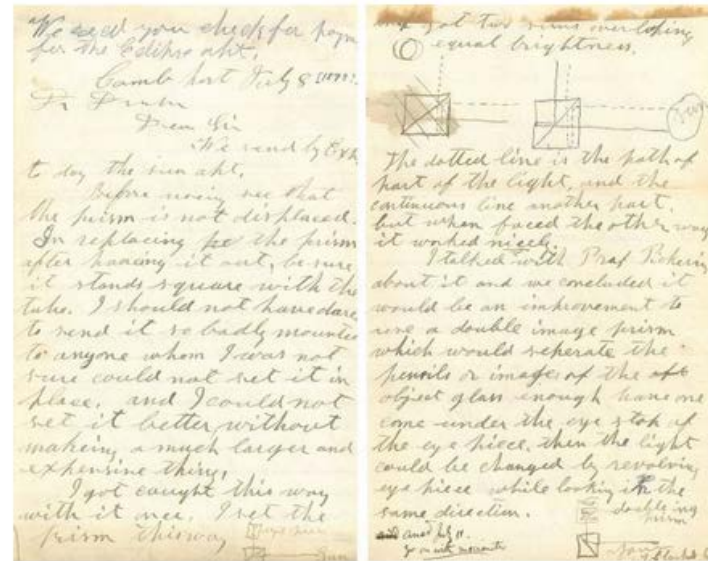 We send you check for
for the
Camb port July 8
Dr Draper
Dear Sir
We send by Exp
to day the sun apt.
Before using see that
the prism is not displaced.
In replacing the prism
after having it out, be sure
it stands square with the
tube. I should not have dared
to send it so badly mounted
to anyone whom I was not
sure could not set it in
place, and I could not
set it better without
making a much larger and
expensive thing.
I got caught this way
with it once. I set the
prism this way
Sun
and got two suns overloping
equal brightness.
Sun
The dotted line is the path of
part of the light, and the
continuous line another part.
but when faced the other way
it worked nicely.
I talked with Prof Pickering
about it and we concluded it
would be an improvement to
use a double image prism
which would seperate the
pencils or images of the
object glass enough have one
come under the eye stop of
the eye piece, then the light
could be changed by revolving
eye piece while looking in the
same direction.
double img
prism
ansd July 11.